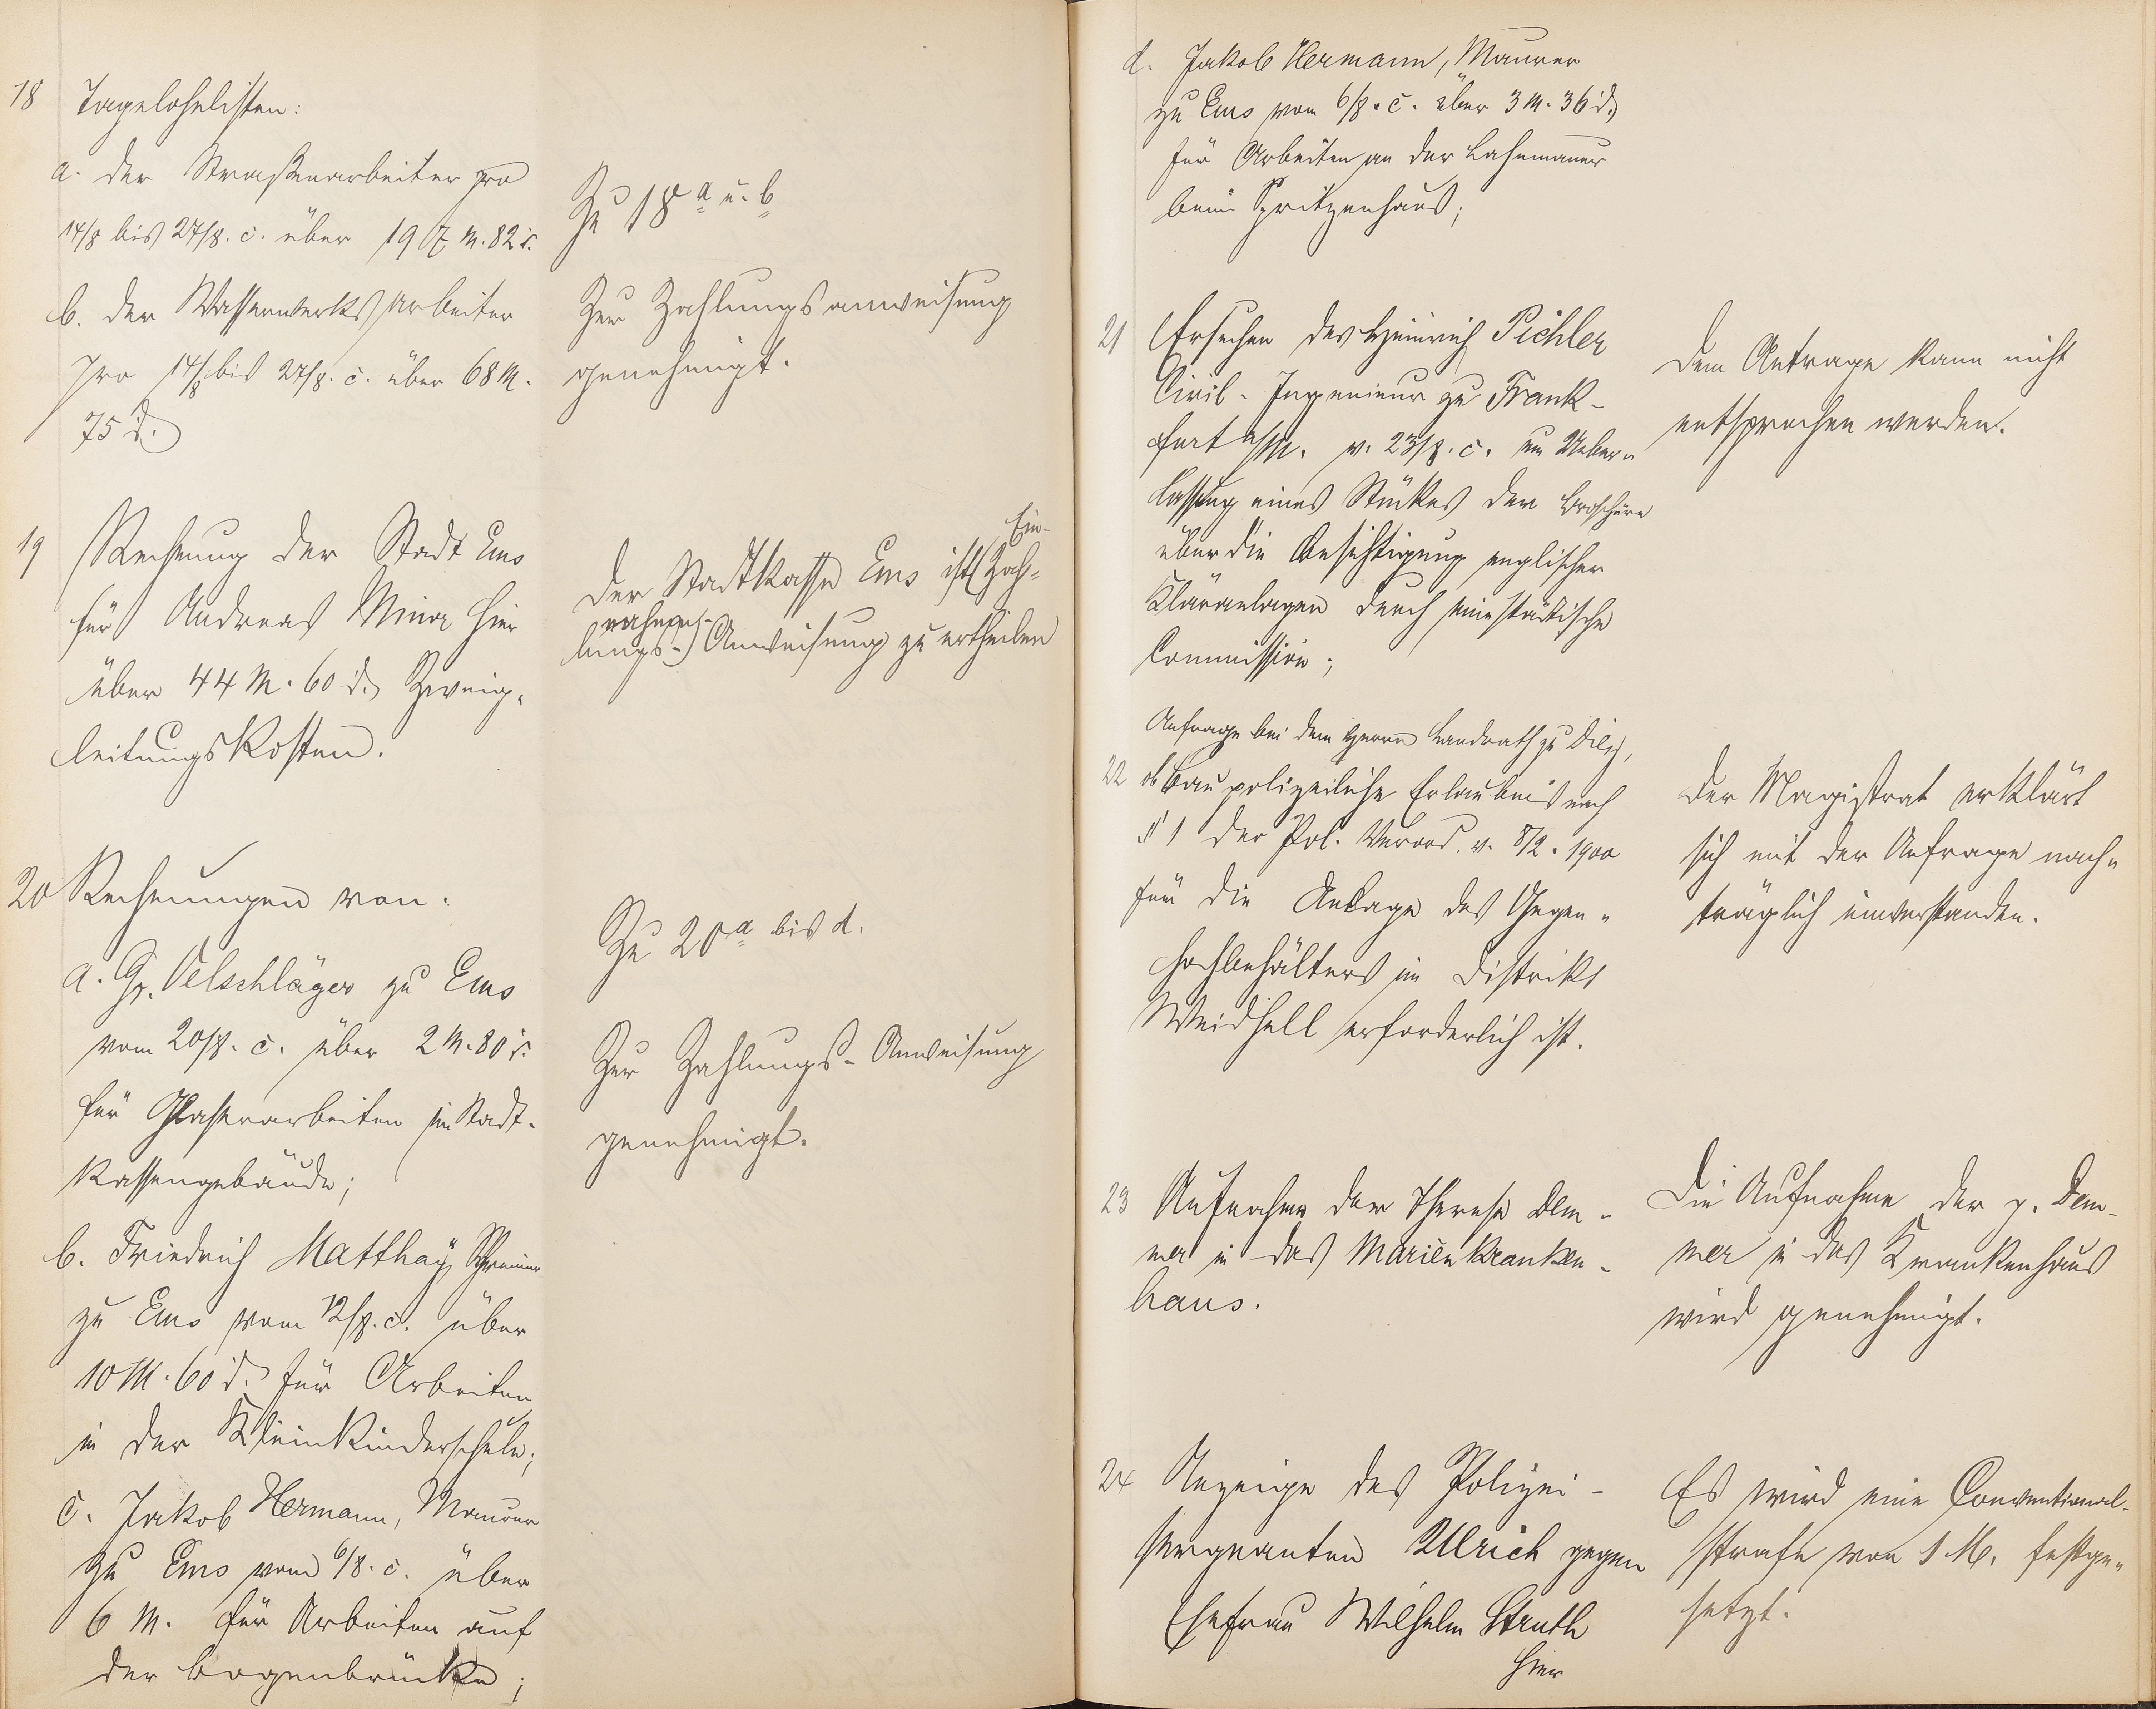 18 Tagelohnlisten:
a. der Straßenarbeiter pro
14/8 bis 27/8. c. über 197 M. 82 d.
b. der Wasserwerksarbeiter
pro 14/8 bis 27/8. c. über 68 M.
75 d.
Zu 18 a u. b
Zur Zahlungsanweisung
genehmigt.
19 Rechnung der Stadt Ems
für Andreas Minor hier
über 44 M. 60 d. Zweig-
leitungskosten.
Ein-
Der Stadtkasse Ems ist (Zah-
nahme-
lungs-) Anweisung zu ertheilen
20 Rechnungen von:
a. Gg. Oelschläger zu Ems
vom 20/8. c. über 2 M. 80 d.
für Glaserarbeiten im Stadt-
kassengebäude;
b. Friedrich Matthay, Schreiner
zu Ems vom 12/8. c. über
10 M. 60 d. für Arbeiten
in der Kleinkinderschule;
c. Jakob Hermann, Maurer
zu Ems vom 6/8. c. über
6 M. für Arbeiten auf
der Bogenbrücke;
Zu 20 a bis d.
Zur Zahlungs-Anweisung
genehmigt.
d. Jakob Hermann, Maurer
zu Ems vom 6/8. c. über 3 M. 36 d.
für Arbeiten an der Lahnmauer
beim Spritzenhaus;
21 Ersuchen des Heinrich Pichler
Civil-Ingenieur zu Frank-
furt a/M. v. 23/8. c. um Ueber-
lassung eines Stückes der Broschüre
über die Besichtigung englischer
Kläranlagen durch eine städtische
Commission;
Dem Antrage kann nicht
entsprochen werden.
Anfrage bei dem Herrn Landrath zu Diez,
22 ob baupolizeiliche Erlaubnis nach
§ 1 der Pol. Verord. v. 8/2. 1900
für die Anlage des Gegen-
hochbehälters im Distrikt
Weidhell erforderlich ist.
Der Magistrat erklärt
sich mit der Anfrage nach-
träglich einverstanden.
23 Aufnahme der Therese Dem-
mer in das Marienkranken-
haus.
Die Aufnahme der p. Dem-
mer in das Krankenhaus
wird genehmigt.
24 Anzeige des Polizei-
sergeanten Ulrich gegen
Ehefrau Wilhelm Struth
hier
Es wird eine Conventional-
strafe von 1 M. festge-
setzt.